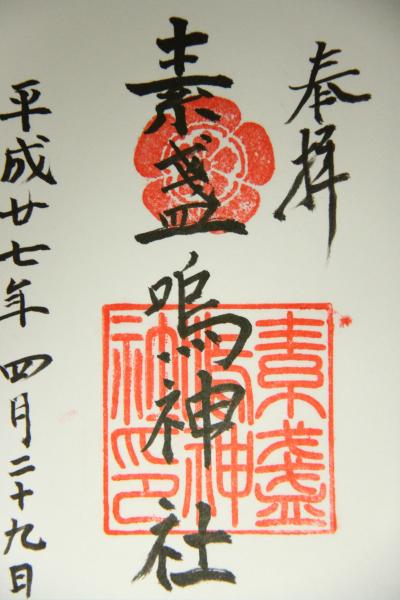 奉拝
素盞嗚神社
平成廿七年四月二十九日
素盞
嗚神
社印